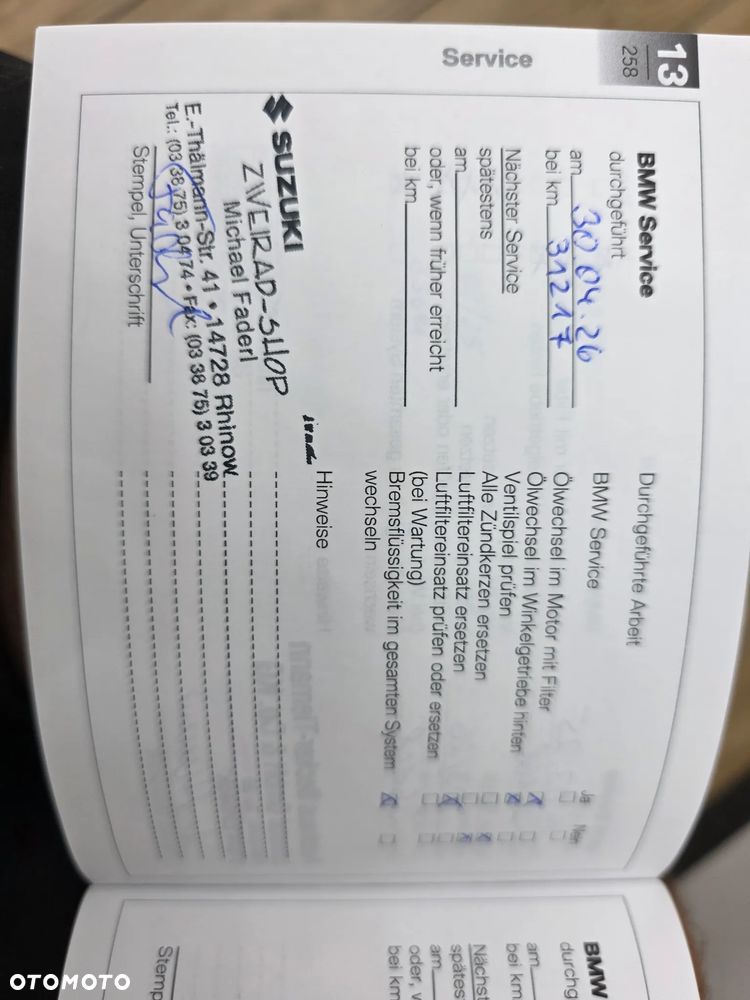 13
258
Service
BMW Service
durchgeführt
am 30.04.26
bei km 31217
Nächster Service
spätestens
am
oder, wenn früher erreicht
bei km
SUZUKI
ZWEIRAD-SHOP
Michael Faderl
E.-Thälmann-Str. 41 • 14728 Rhinow
Tel.: (03 38 75) 3 04 74 • Fax: (03 38 75) 3 03 39
Stempel, Unterschrift
Durchgeführte Arbeit
BMW Service
Ja Nein
Ölwechsel im Motor mit Filter
Ölwechsel im Winkelgetriebe hinten
Ventilspiel prüfen
Alle Zündkerzen ersetzen
Luftfiltereinsatz ersetzen
Luftfiltereinsatz prüfen oder ersetzen
(bei Wartung)
Bremsflüssigkeit im gesamten System
wechseln
Hinweise
BMW
durchg
am
bei km
Nächst
spätest
am
oder, w
bei km
Stemp
OTOMOTO